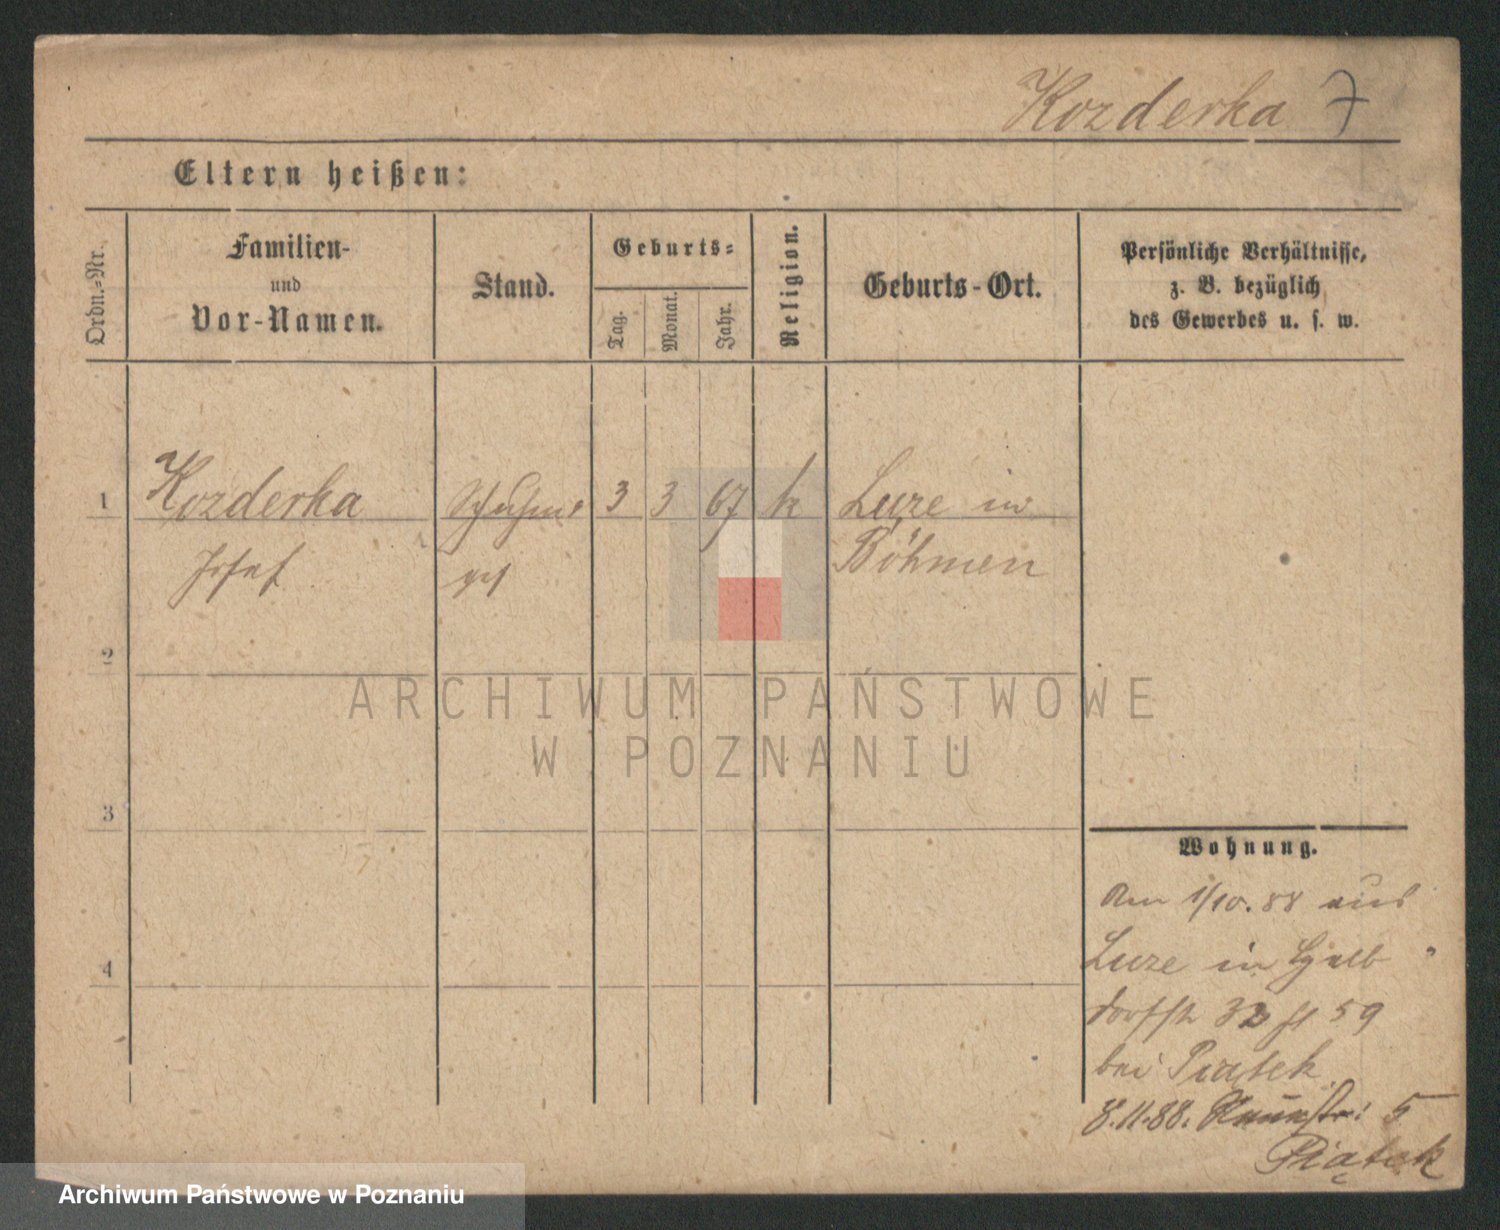 Kozderka 7
Eltern heißen:
Ordn.-Nr.
Familien-
und
Vor-Namen.
Stand.
Geburts-
Tag.
Monat.
Jahr.
Religion.
Geburts-Ort.
Persönliche Verhältnisse,
z. B. bezüglich
des Gewerbes u. s. w.
1 Kozderka 3 3 67 k Luze in
Josef Böhmen
2
3
4
ARCHIWUM PAŃSTWOWE
W POZNANIU
Wohnung.
Am 1/10.88 aus
Luze in Halb
dorfstr 32 59
bei Piątek
8.11.88. 5
Piątek
Archiwum Państwowe w Poznaniu